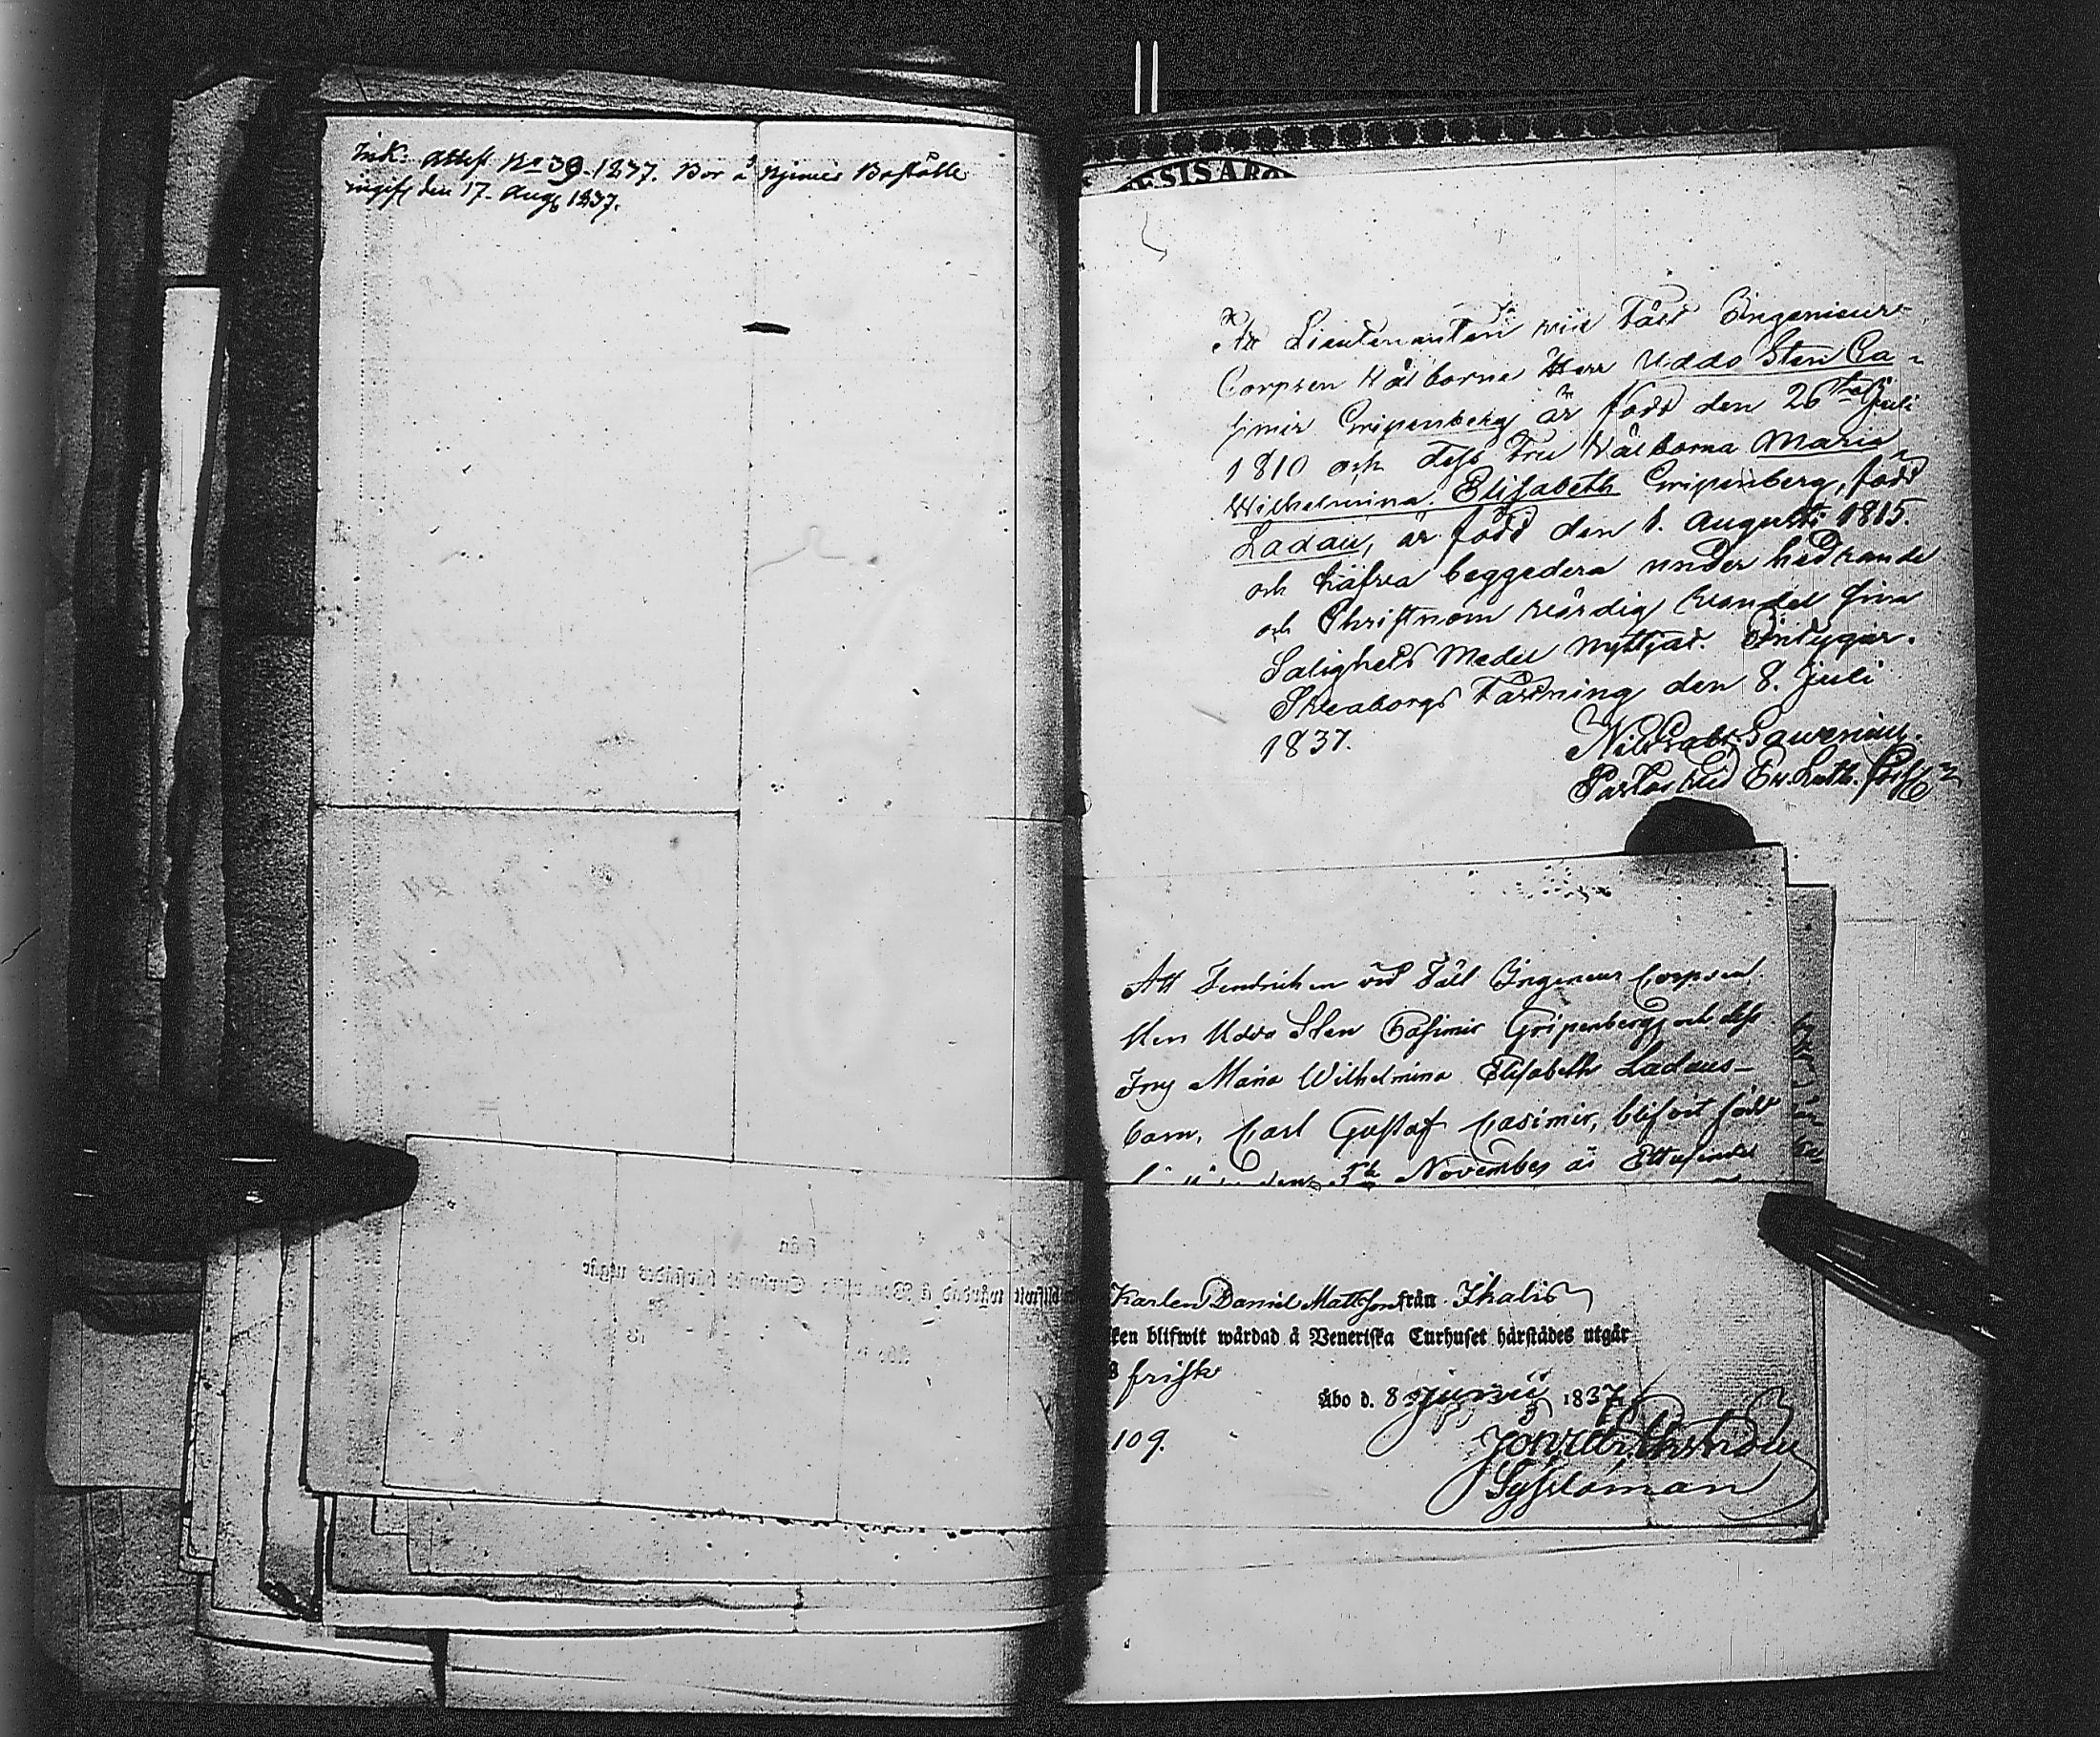 Ink. Attest No 39. 1837. Bor å Boställe
ingift den 17. Aug 1837.
ESIS ABO
Att Lieutenanten vid Fält Ingenieurs-
Corpsen Välborne Herr Uddo Sten Ca-
simir Gripenberg är född den 26te Juli
1810 och dess Fru Välborna Maria
Wilhelmina Elisabeth Gripenberg, född
Ladau, är född den 1. Augusti 1815.
och hafva beggedera under hedrande
och Christnom värdig vandel sina
Salighets Medel nyttjat. Intygar.
Sveaborgs Fästning den 8. Juli
1837.
Pastor vid Ev. Luth.
Att Fendrichen vid Fält Ingenieur Corpsen
Herr Uddo Sten Casimir Gripenberg och dess
Fru Maria Wilhelmina Elisabeth Ladaus-
barn, Carl Gustaf Casimir, blifvit född
den 5te November år Ettusende
Karlen Daniel Mattsson från Ikalis
ken blifwit wårdad å Veneriska Curhuset härstädes utgår
s frisk
Åbo d. 8 Junii 1837.
109.
Sysloman